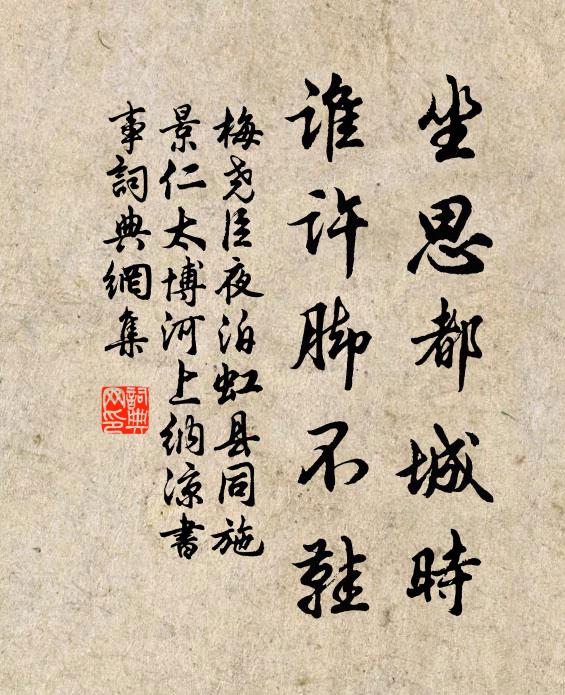 坐思都城時
誰許脚不鞋
梅尧臣夜泊虹县同施
景仁太博河上纳凉書
事詞典網集
詞典
网印